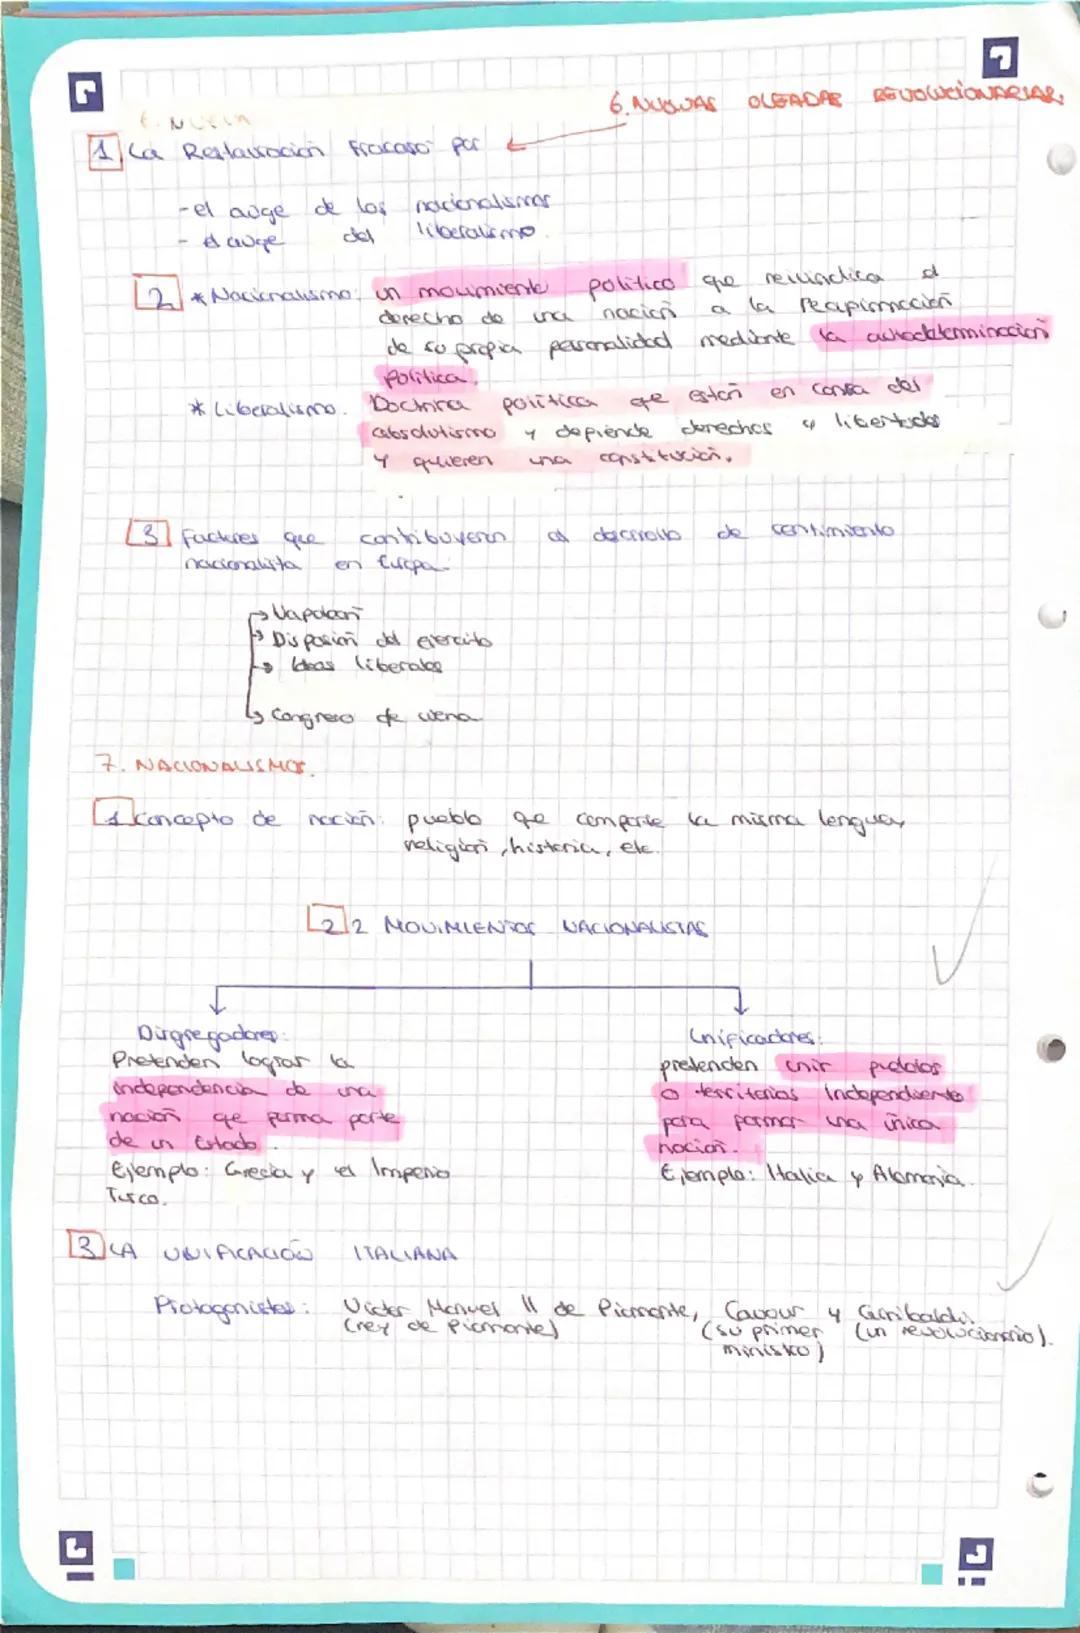 6. NUEVAS OLEADAS REVOLUCIONARIAS.
1 La Restauración Fracasó por
- el auge de los nacionalismos
- el auge del liberalismo.
2 * Nacionalismo: un movimiento político que reivindica el
derecho de una nación a la reafirmación
de su propia personalidad mediante la autodeterminación
política.
* Liberalismo. Doctrina política que están en contra del
absolutismo y defiende derechos y libertades
y quieren una constitución.
3 Factores que contribuyeron al desarrollo de sentimiento
nacionalista en Europa.
Napoleón
Disposión del ejercito
Ideas liberales
Congreso de viena
7. NACIONALISMOS.
1 Concepto de nación: pueblo que comparte la misma lengua,
religión, historia, etc.
2 2 MOVIMIENTOS NACIONALISTAS
Disgregadores:
Pretenden lograr la
independencia de una
nación que forma parte
de un Estado.
Ejemplo: Grecia y el Imperio
Turco.
Unificadores:
pretenden unir pueblos
o territorios independiente
para formar una única
nación.
Ejemplo: Italia y Alemania.
3 LA UNIFICACIÓN ITALIANA
Protagonistas: Victor Manuel II de Piamonte, Cavour y Garibaldi.
(rey de Piamonte) (su primer ministro) (un revolucionario).